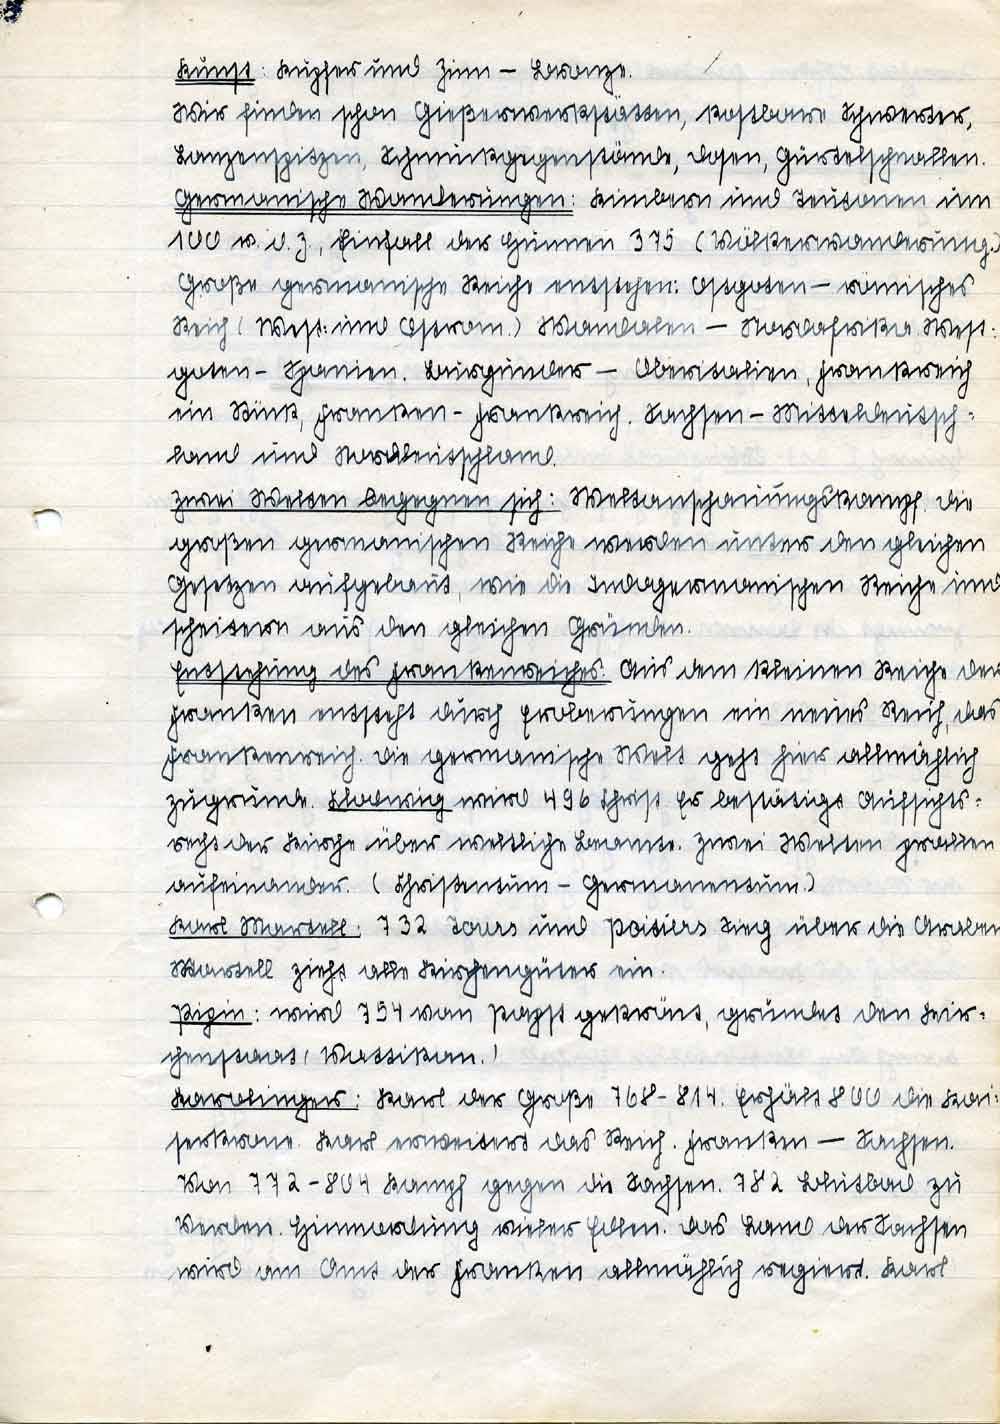 Kunst: Kupfer und Zinn – Bronze.
Wir finden schon Gießerwerkstätten, kostbare Schwerter,
Lanzenspitzen, Schmuckgegenstände, Dosen, Gürtelschnallen.
Germanische Wanderungen: Kimbern und Teutonen um
100 v. d. Z., Einfall der Hunnen 375 (Völkerwanderung.)
Große germanische Reiche entstehen: Ostgoten – römisches
Reich (West- und Ostrom.) Wandalen – Nordafrika West-
goten – Spanien. Burgunder – Oberitalien, Frankreich
ein Stück, Franken – Frankreich. Sachsen – Mitteldeutsch-
land und Norddeutschland.
Zwei Welten begegnen sich: Weltanschauungskampf. Die
großen germanischen Reiche werden unter den gleichen
Gesetzen aufgebaut, wie die Indogermanischen Reiche und
scheitern aus den gleichen Gründen.
Entstehung des Frankenreiches. Aus dem kleinen Reiche der
Franken entsteht durch Eroberungen ein neues Reich, das
Frankenreich. Die germanische Welt geht hier allmählich
zugrunde. Chlodwig wird 496 Christ. Er bestätigt Aufsichts-
recht der Kirche über weltliche Beamte. Zwei Welten prallen
aufeinander. (Christentum – Germanentum.)
Karl Martell: 732 Tours und Poitiers Sieg über die Araber
Martell zieht alle Kirchengüter ein.
Pipin: wird 754 von Papst gekrönt, gründet den Kir-
chenstaat (Vattikan.)
Karolinger: Karl der Große 768–814. Erhält 800 die Kai-
serkrone. Karl erweitert das Reich. Franken – Sachsen.
Von 772–804 Kampf gegen die Sachsen. 782 Blutbad zu
Verden. Hinmordung vieler Edlen. Das Land der Sachsen
wird am Amt der Franken allmählich regiert. Karl